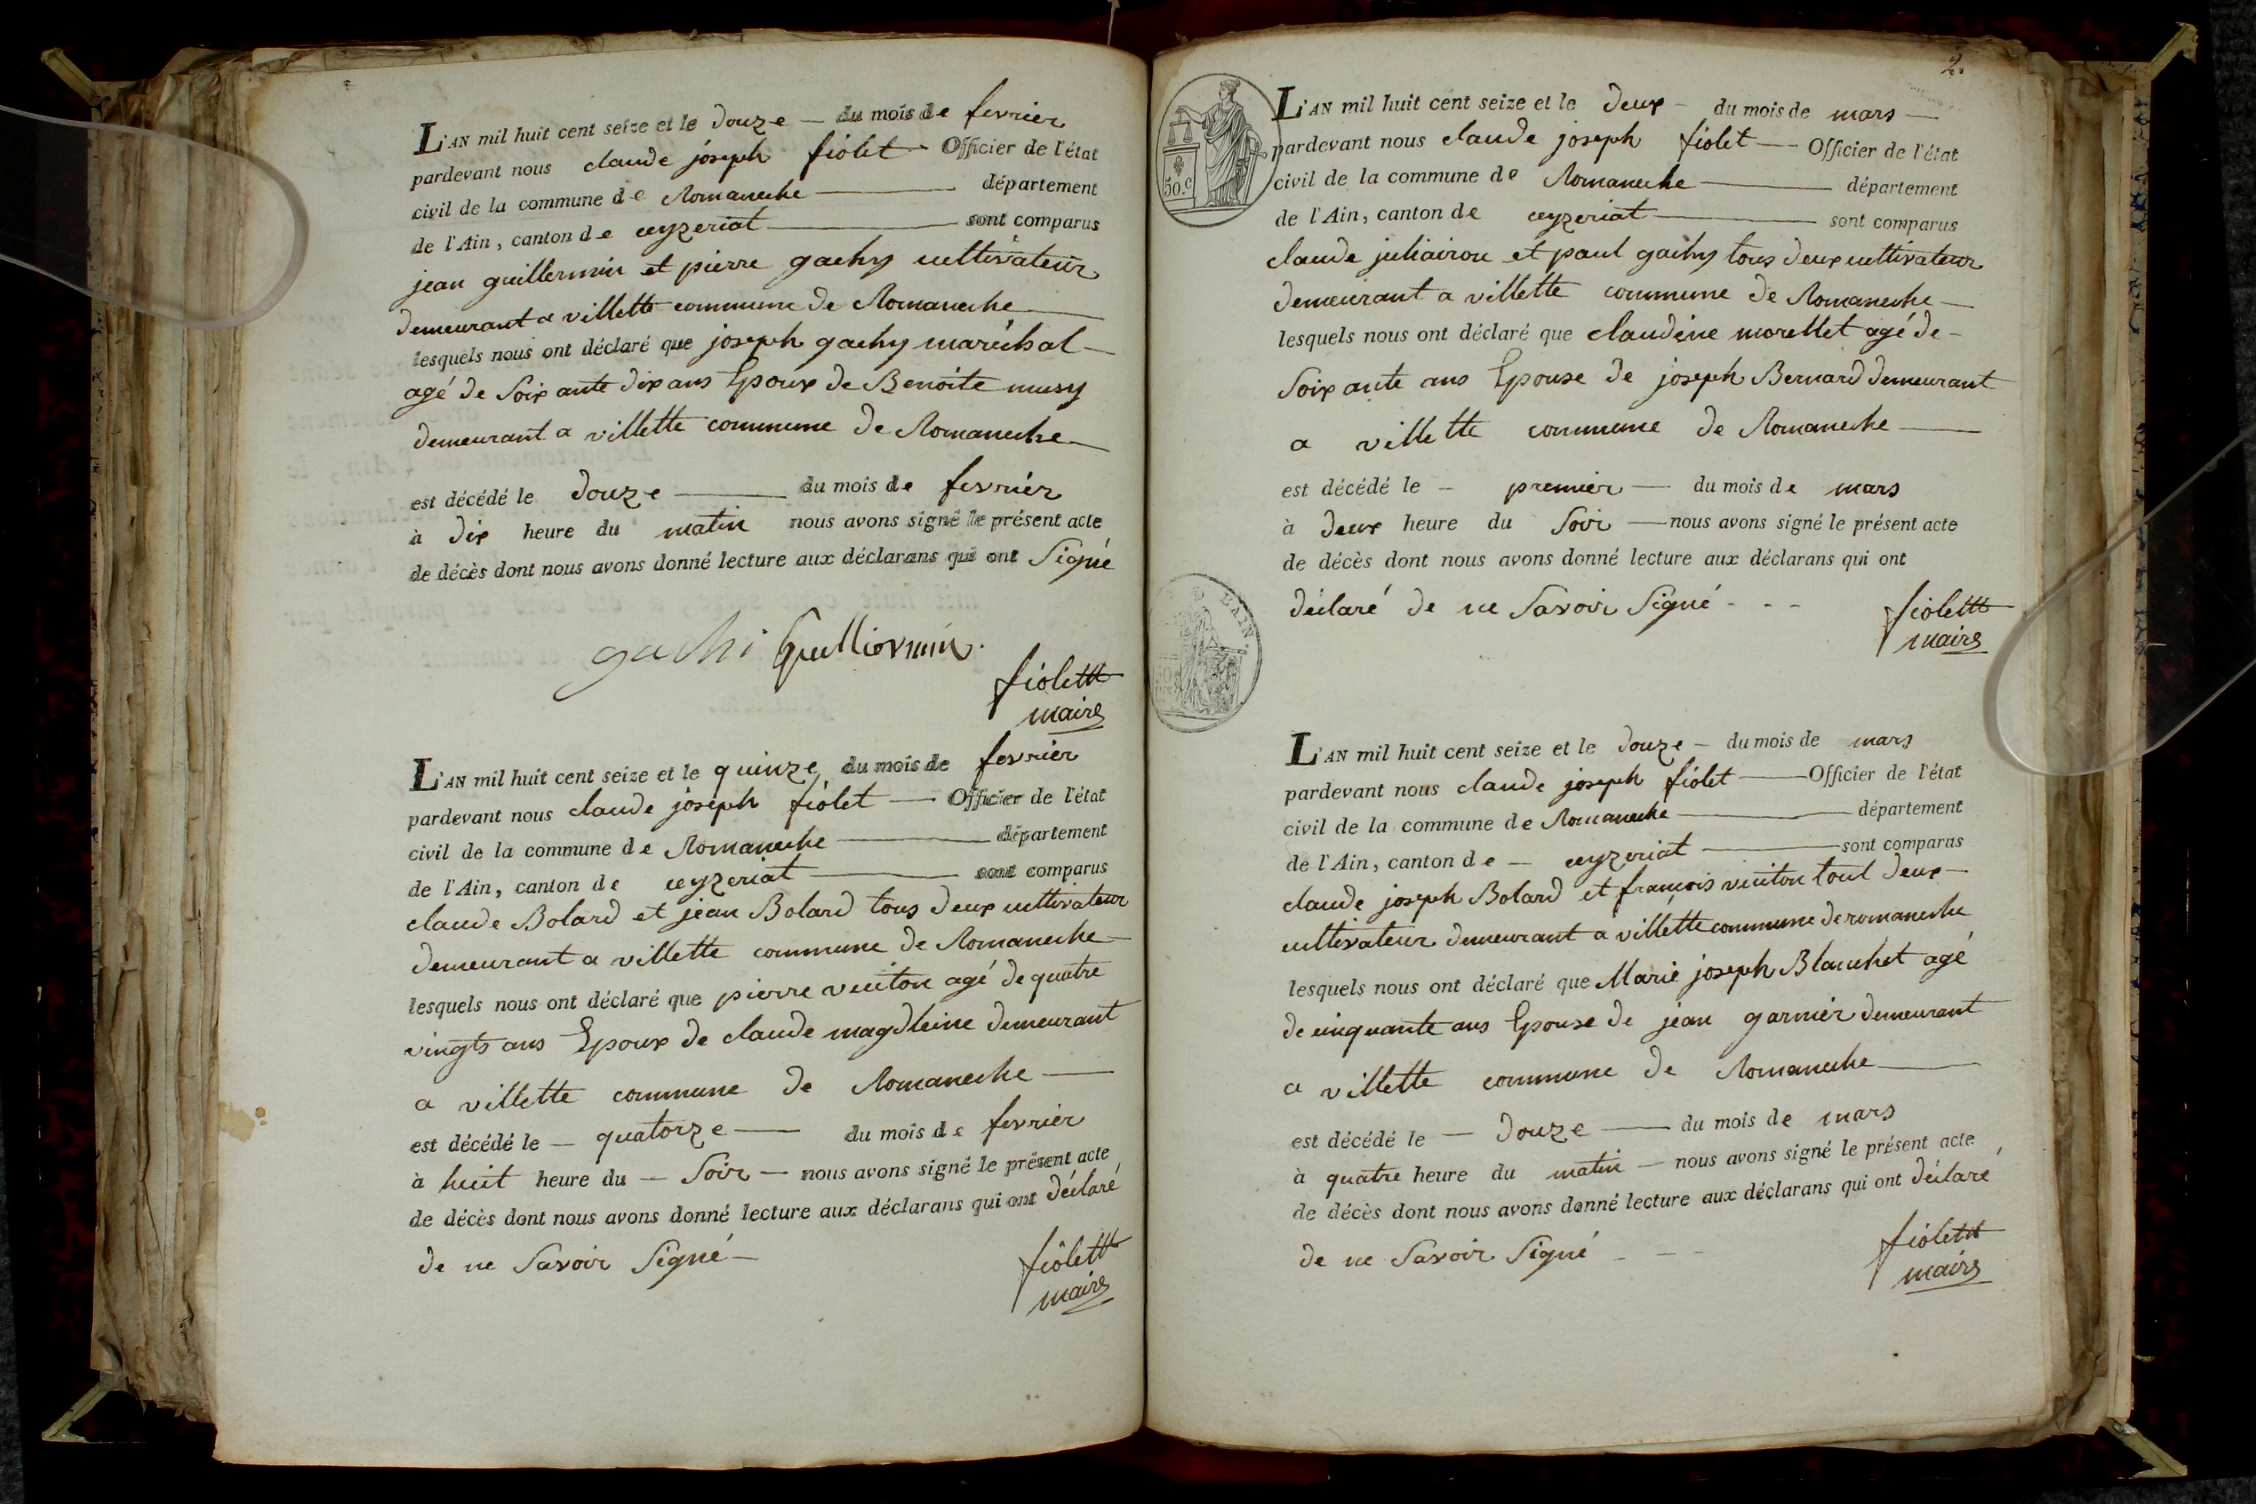 L'AN mil huit cent seize et le douze — du mois de fevrier
pardevant nous claude joseph fiolet — Officier de l'état
civil de la commune de Romaneche — département
de l'Ain, canton de ceyzeriat — sont comparus
jean guillermin et pierre gachy cultivateur
demeurant a villette commune de Romaneche —
lesquels nous ont déclaré que joseph gachy maréchal —
agé de Soixante dix ans Epoux de Benoite musy
demeurant a villette commune de Romaneche —
est décédé le douze — du mois de fevrier
à dix heure du matin nous avons signé le présent acte
de décès dont nous avons donné lecture aux déclarans qui ont Signé
gachi Guilliermin.
fiolett
maire
L'AN mil huit cent seize et le quinze du mois de fevrier
pardevant nous claude joseph fiolet — Officier de l'état
civil de la commune de Romaneche — département
de l'Ain, canton de ceyzeriat — sont comparus
claude Bolard et jean Bolard tous deux cultivateur
demeurant a villette commune de Romaneche —
lesquels nous ont déclaré que pierre vuiton agé de quatre
vingts ans Epoux de claude magdleine demeurant
a villette commune de Romaneche —
est décédé le — quatorze — du mois de fevrier
à huit heure du — Soir — nous avons signé le présent acte
de décès dont nous avons donné lecture aux déclarans qui ont déclaré
de ne Savoir Signé —
fiolett
maire
2.
50.c
L'AN mil huit cent seize et le deux — du mois de mars —
pardevant nous claude joseph fiolet — Officier de l'état
civil de la commune de Romaneche — département
de l'Ain, canton de ceyzeriat — sont comparus
claude et paul gachy tous deux cultivateur
demeurant a villette commune de Romaneche —
lesquels nous ont déclaré que claudine morellet agé de —
Soixante ans Epouse de joseph Bernard demeurant
a villette commune de Romaneche —
est décédé le — premier — du mois de mars
à deux heure du Soir — nous avons signé le présent acte
de décès dont nous avons donné lecture aux déclarans qui ont
déclaré de ne Savoir Signé - - -
L'AIN.
fiolett
maire
L'AN mil huit cent seize et le douze — du mois de mars
pardevant nous claude joseph fiolet — Officier de l'état
civil de la commune de Romaneche — département
de l'Ain, canton de — ceyzeriat — sont comparus
claude joseph Bolard et françois vuiton tout deux —
cultivateur demeurant a villette commune de romaneche
lesquels nous ont déclaré que Marie joseph Blanchet agé
de cinquante ans Epouse de jean garnier demeurant
a villette commune de Romaneche —
est décédé le — douze — du mois de mars
à quatre heure du matin — nous avons signé le présent acte
de décès dont nous avons donné lecture aux déclarans qui ont déclaré
de ne Savoir Signé - - -
fiolett
maire